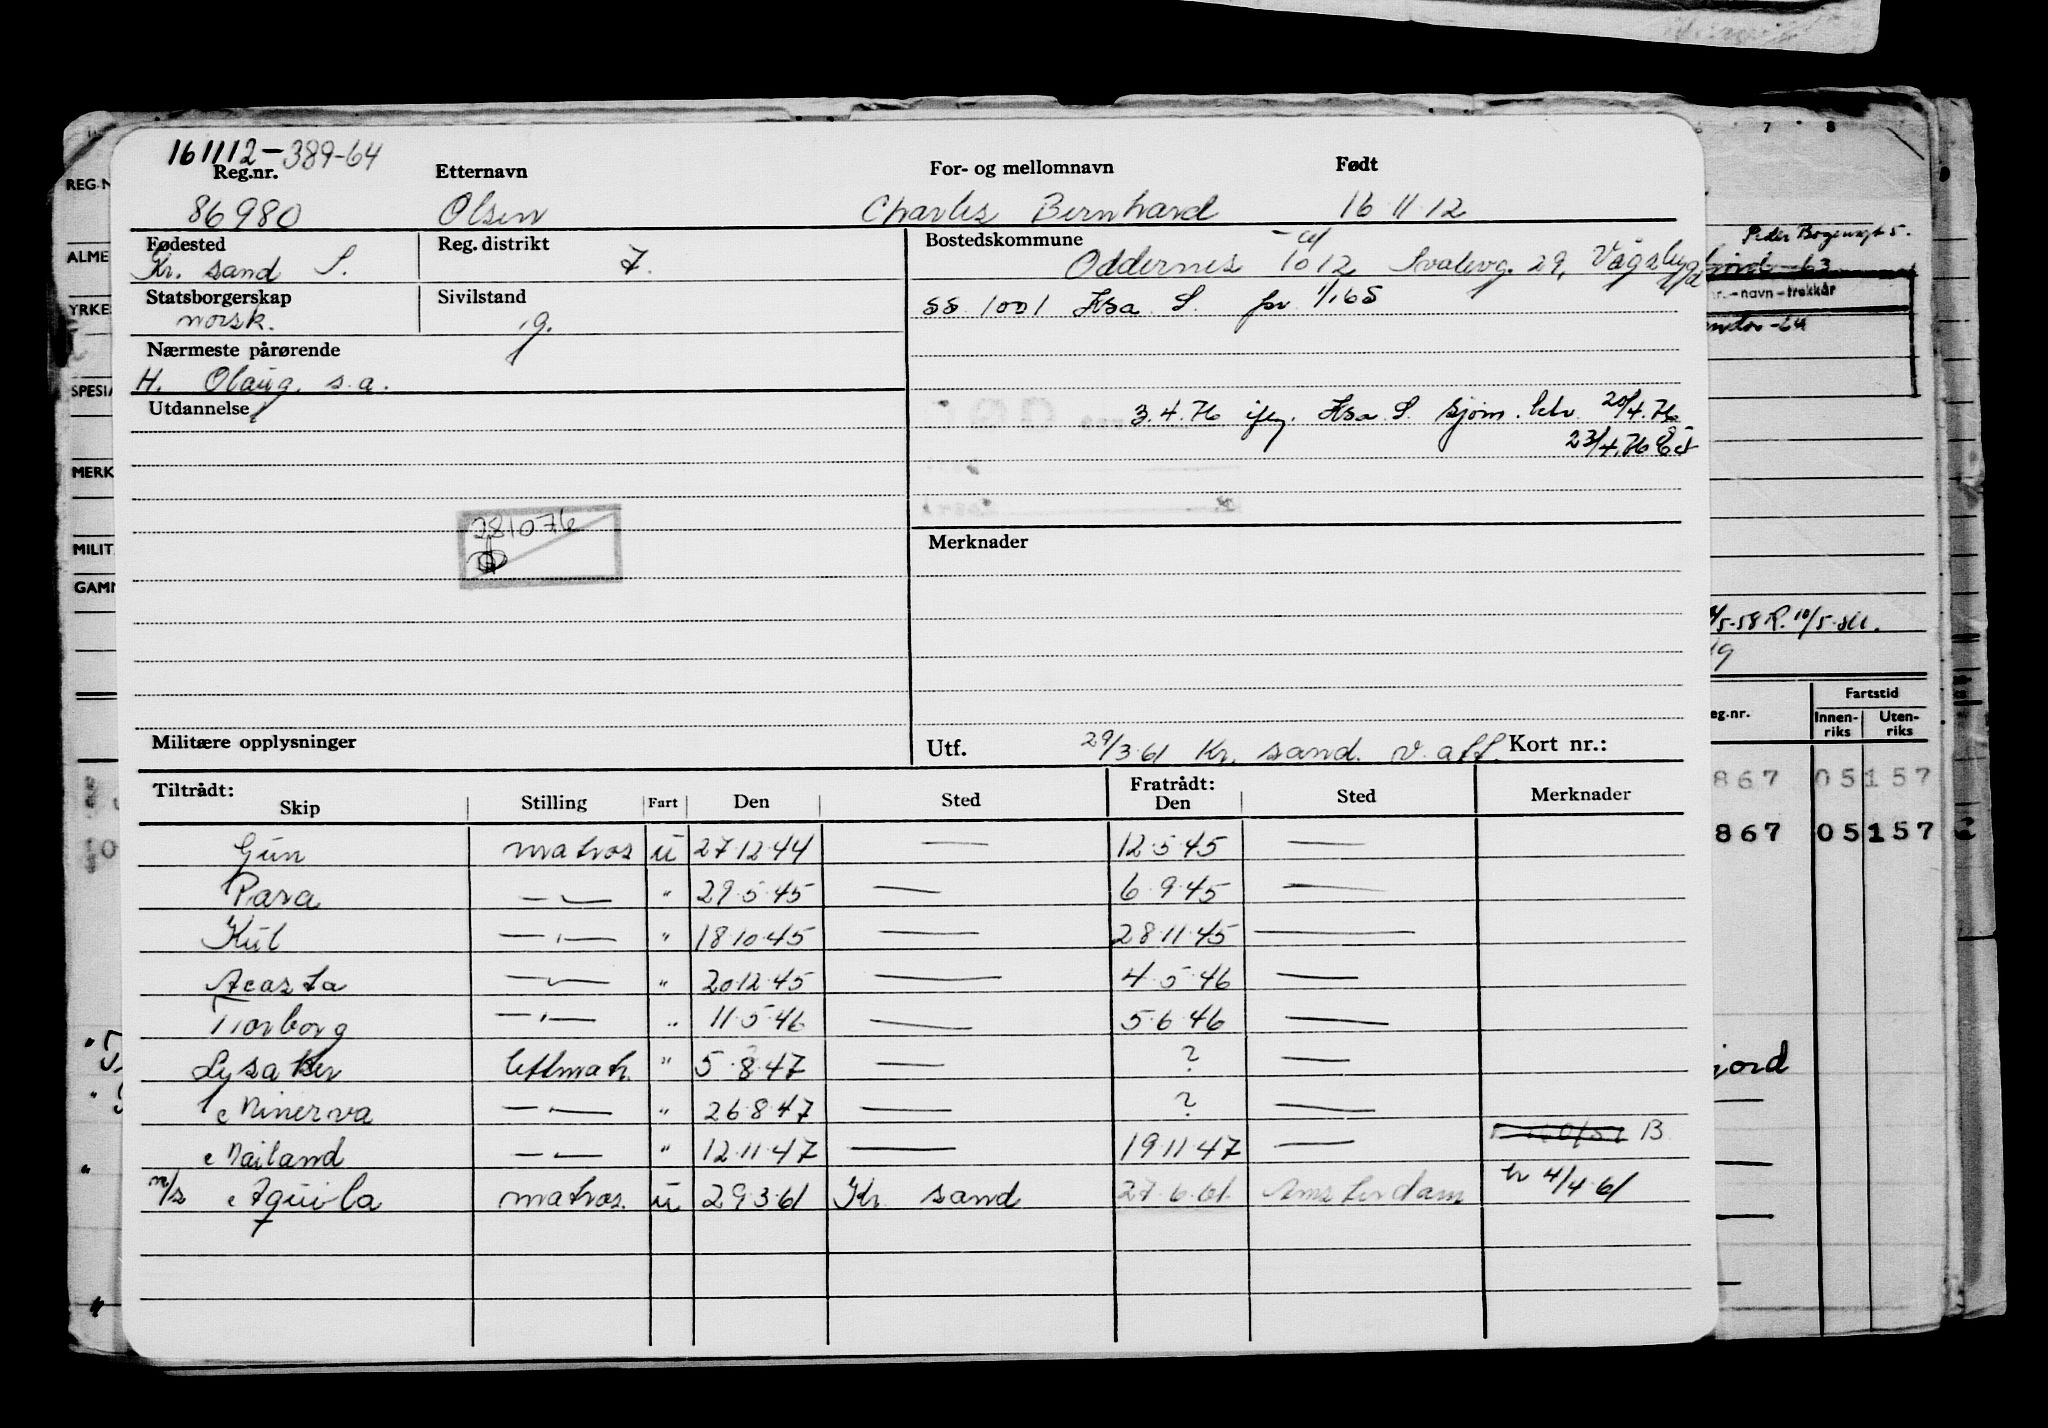 161112-389-64
Reg.nr. Etternavn For- og mellomnavn Født
86980 Olsen Charles Bernhard 16 11 12
Fødested Reg. distrikt Bostedskommune
Kr. sand S. 7. Oddernes 1012 Svalevg. 29, Vågsbygd
Statsborgerskap Sivilstand
norsk. g. 1001 Krsa. S. pr 1/1 65
Nærmeste pårørende
H. Olaug, s.a.
Utdannelse
3.4.76 Krsa. S. sjøm. ktr. 20/4.76
23/4.76
281076
Merknader
Militære opplysninger Utf. 29/3 61 Kr. sand. Kort nr.:
Tiltrådt: Fratrådt:
Skip Stilling Fart Den Sted Den Sted Merknader
Gun matros u 27.12.44 — 12.5.45 —
Para — " — " 29.5.45 — 6.9.45 —
— " — " 18.10.45 — 28.11.45 —
Acasta — " — " 20.12.45 — 4.5.46 —
Thorborg — " — " 11.5.46 — 5.6.46 —
Lysaker lettmatr. " 5.8.47 — ? —
Minerva — " — " 26.8.47 — ? —
Mailand — " — " 12.11.47 — 19.11.47 — B
m/s Aquila matros. u 29.3.61 Kr. sand 27.6.61 Amsterdam 4/4.61
REG.N
ALME
YRKE
SPESIA
MERK
MILIT
GAMM
7 8
Peder Bogensgt 5.
-63
-navn-trekkår
-64
5-58 R. 10/5
19
eg.nr. Fartstid
Innen-riks Uten-riks
867 05157
867 05157
jord